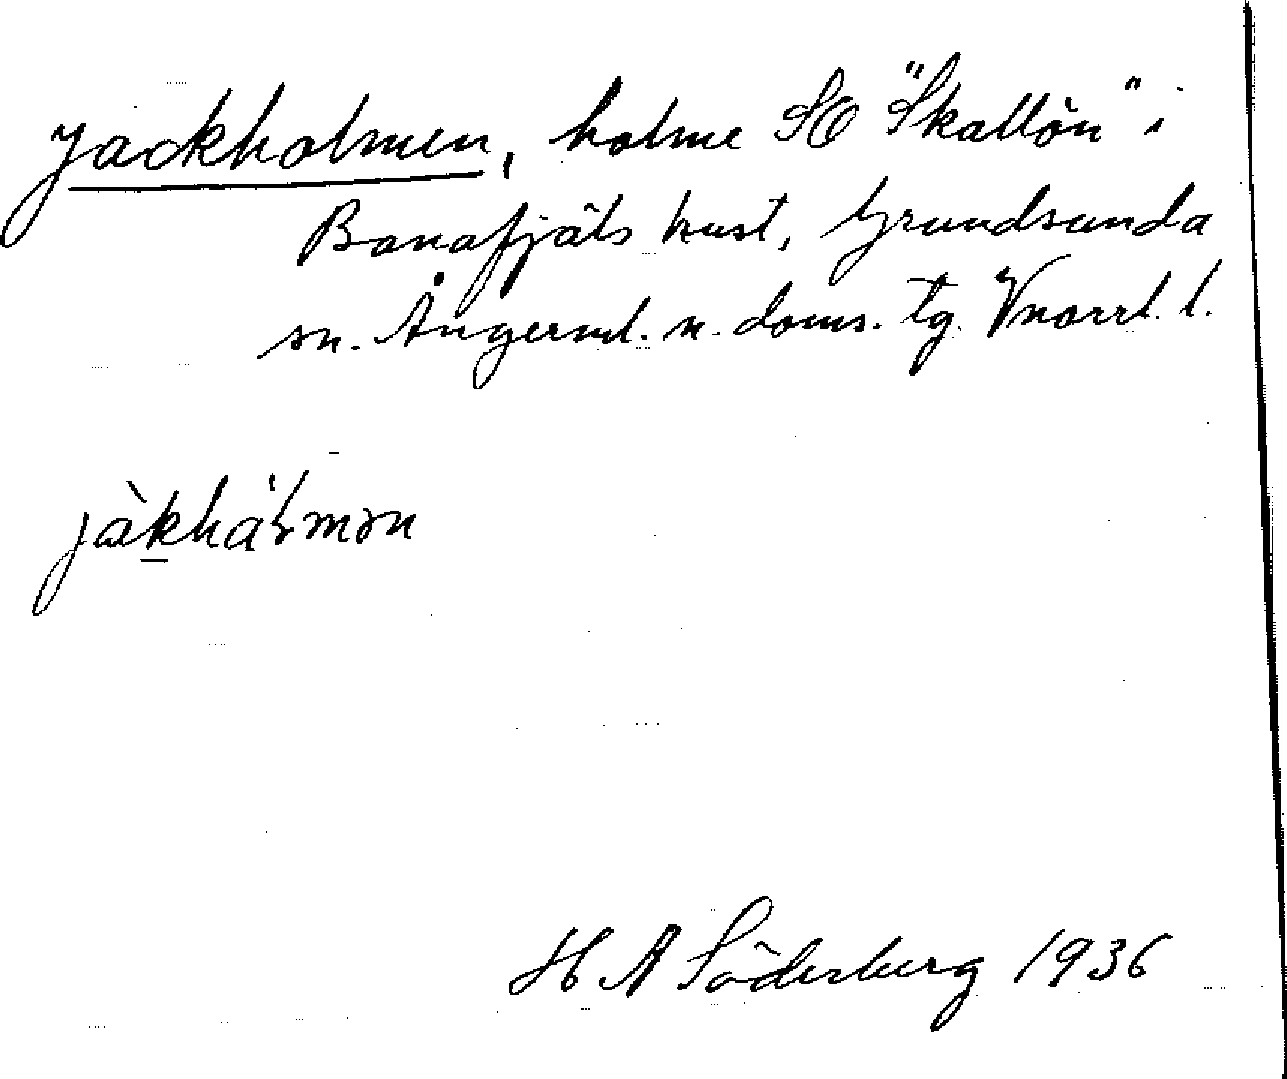 Jackholmen, holme SO "Skallön" i
Banafjäls kust, Grundsunda
sn. Ångerml. n. doms. tg. Vnorrl. l.
jàkhå̀ɫmən
H A Söderberg 1936